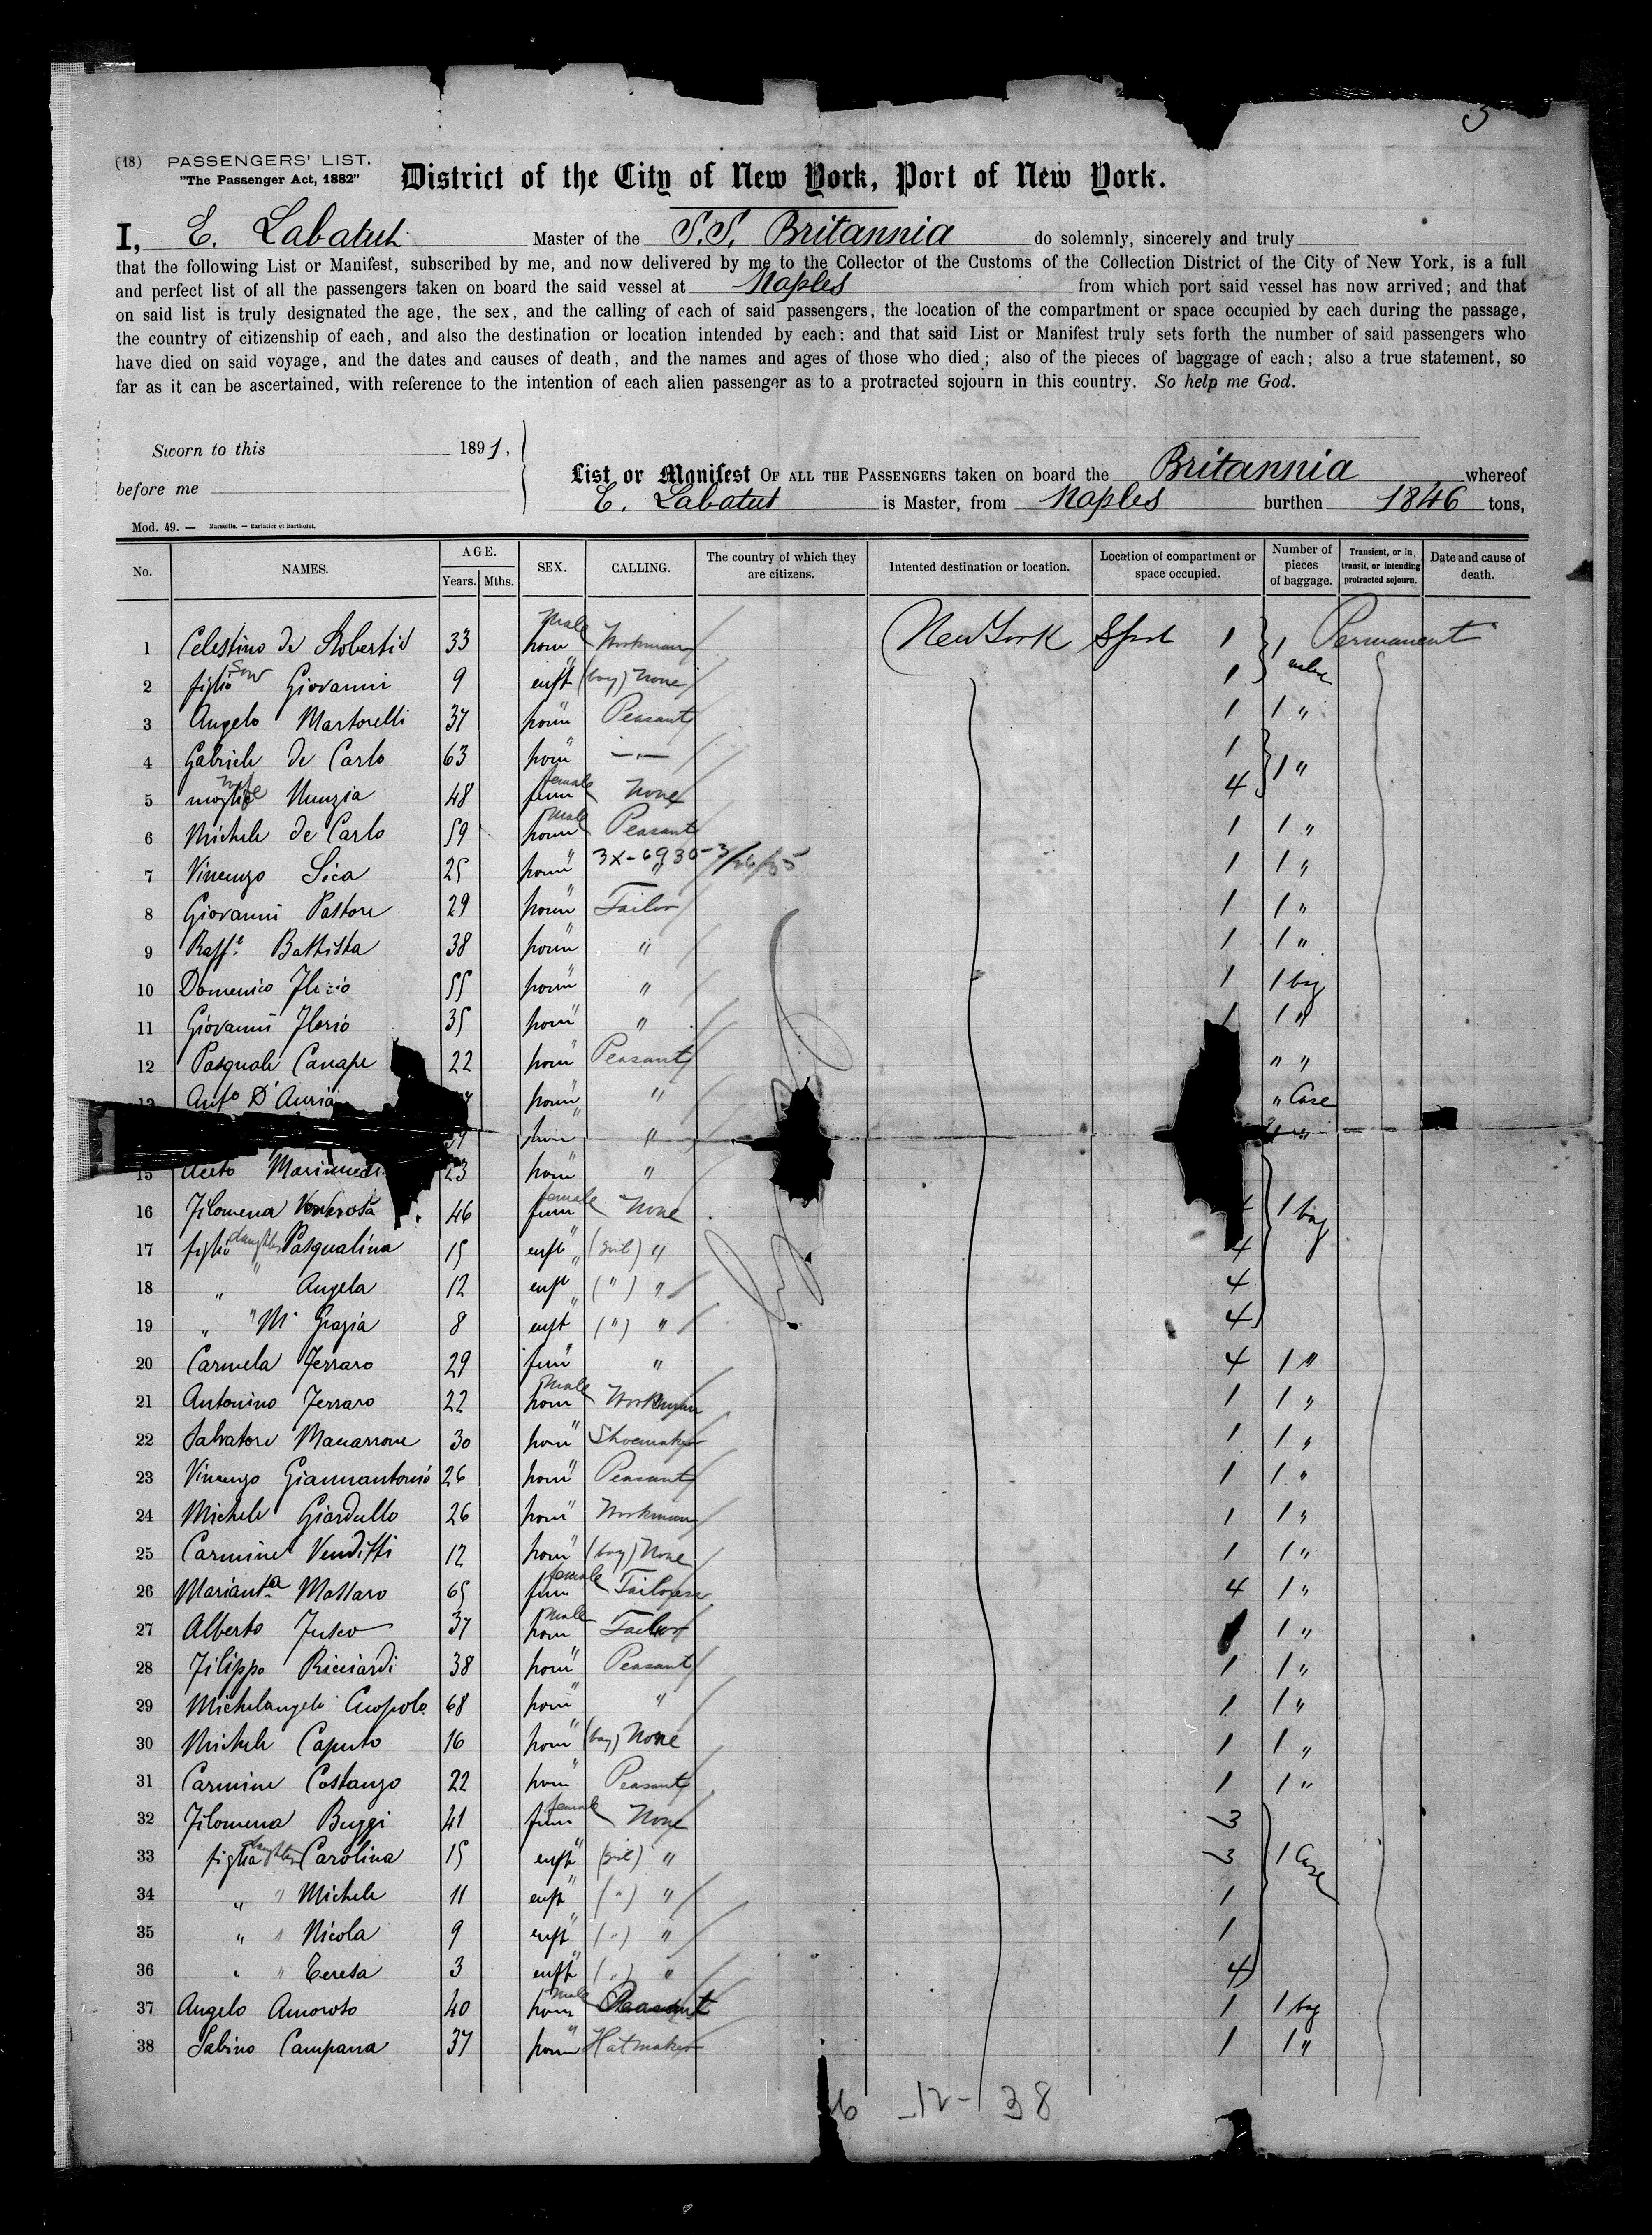 (18) PASSENGERS' LIST.
"The Passenger Act, 1882"
District of the City of New York, Port of New York.
I, E. Labatut Master of the S.S. Britannia do solemnly, sincerely and truly
that the following List or Manifest, subscribed by me, and now delivered by me to the Collector of the Customs of the Collection District of the City of New York, is a full
and perfect list of all the passengers taken on board the said vessel at Naples from which port said vessel has now arrived; and that
on said list is truly designated the age, the sex, and the calling of each of said passengers, the location of the compartment or space occupied by each during the passage,
the country of citizenship of each, and also the destination or location intended by each: and that said List or Manifest truly sets forth the number of said passengers who
have died on said voyage, and the dates and causes of death, and the names and ages of those who died; also of the pieces of baggage of each; also a true statement, so
far as it can be ascertained, with reference to the intention of each alien passenger as to a protracted sojourn in this country. So help me God.
Sworn to this 1891.
before me
List or Manifest OF ALL THE PASSENGERS taken on board the Britannia whereof
E. Labatut is Master, from Naples burthen 1846 tons,
Mod. 49. — Marseille. — Barlatier et Barthelet.
No. NAMES. AGE. Years. Mths. SEX. CALLING. The country of which they are citizens. Intented destination or location. Location of compartment or space occupied. Number of pieces of baggage. Transient, or in transit, or intending protracted sojourn. Date and cause of death.
1 Celestino de Robertis 33 hom male Workman New York 1 1 Permanent
2 figlio son Giovanni 9 enft " (boy) None 1
3 Angelo Martorelli 37 hom " Peasant 1 1 "
4 Gabriele de Carlo 63 hom " —"— 1 1 "
5 moglie wife Nunzia 48 fem female None 4
6 Michele de Carlo 59 hom male Peasant 1 1 "
7 Vincenzo Sica 25 hom " " 3X-6930-3/26/35 1 1 "
8 Giovanni Pastore 29 hom " Tailor 1 1 "
9 Raffe. Battista 38 hom " " 1 1 "
10 Domenico 55 hom " " 1 1 bag
11 Giovanni Ilerio 35 hom " " 1 1 "
12 Pasquale Canape 22 hom " Peasant " "
13 Anto D'Auria hom " " " Case
hom " " "
15 Aceto 23 hom " "
16 Filomena 46 fem female None 4 1 bag
17 figlia daughter Pasqualina 15 enft " (girl) " 4
18 " " Angela 12 enft " (") " 4
19 " " Ma Grazia 8 enft " (") " 4
20 Carmela Ferraro 29 fem " " 4 1 "
21 Antonino Ferraro 22 hom male Workman 1 1 "
22 Salvatore Macarrone 30 hom " Shoemaker 1 1 "
23 Vincenzo Giannantonio 26 hom " Peasant 1 1 "
24 Michele Giardullo 26 hom " Workman 1 1 "
25 Carmine Venditti 12 hom " (boy) None 1 1 "
26 Marianta Massaro 65 fem female Tailoress 4 1 "
27 Alberto Fusco 37 hom male Tailor 1 1 "
28 Filippo Ricciardi 38 hom " Peasant 1 1 "
29 Michelangelo Cuopolo 68 hom " " 1 1 "
30 Michele Caputo 16 hom " (boy) None 1 1 "
31 Carmine Costanzo 22 hom " Peasant 1 1 "
32 Filomena Buggi 41 fem female None 3
33 figlia daughter Carolina 15 enft " (girl) " 3 1 Case
34 " " Michele 11 enft " (") " 1
35 " " Nicola 9 enft " (") " 1
36 " " Teresa 3 enft " (") " 4
37 Angelo Amoroso 40 hom male Peasant 1 1 bag
38 Sabino Campana 37 hom " Hatmaker 1 1 "
6 -12- 38